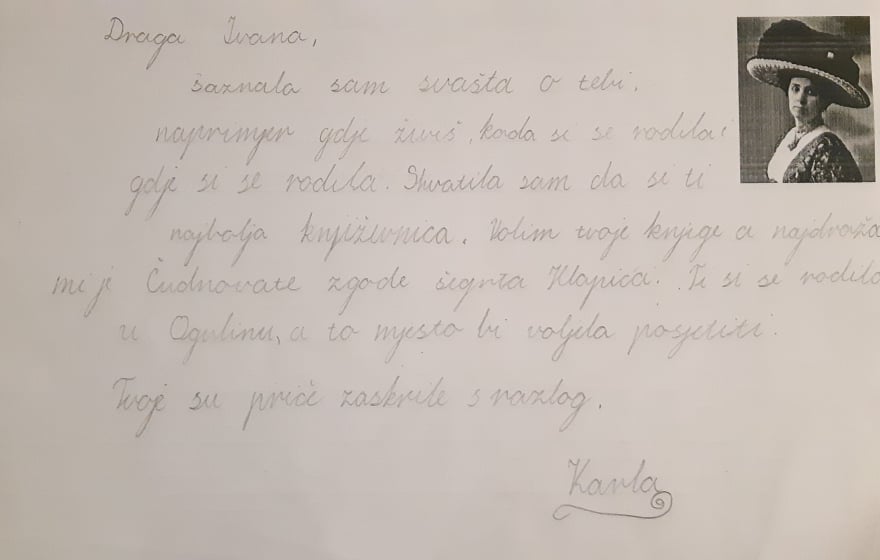 Draga Ivana,
saznala sam svašta o tebi,
naprimjer gdje živiš, kada si se rodila i
gdje si se rodila. Shvatila sam da si ti
najbolja knjiživnica. Volim tvoje knjige a najdraža
mi je Čudnovate zgode šegrta Hlapića. Ti si se rodila
u Ogulinu, a to mjesto bi voljela posjetiti.
Tvoje su priče zaskrile s razlog.
Karla